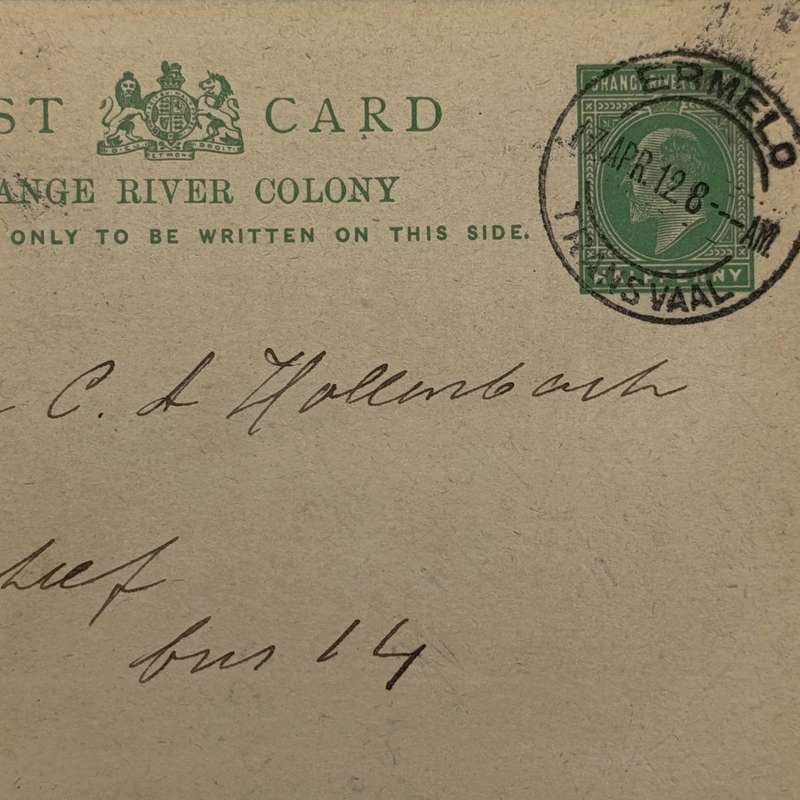 ST CARD
DIEU ET MON DROIT
ANGE RIVER COLONY
ONLY TO BE WRITTEN ON THIS SIDE.
ORANGE RIVER
HALFPENNY
ERMELO
17 APR. 12 8 AM.
TRANSVAAL
C. A Hollenbach
bus 14